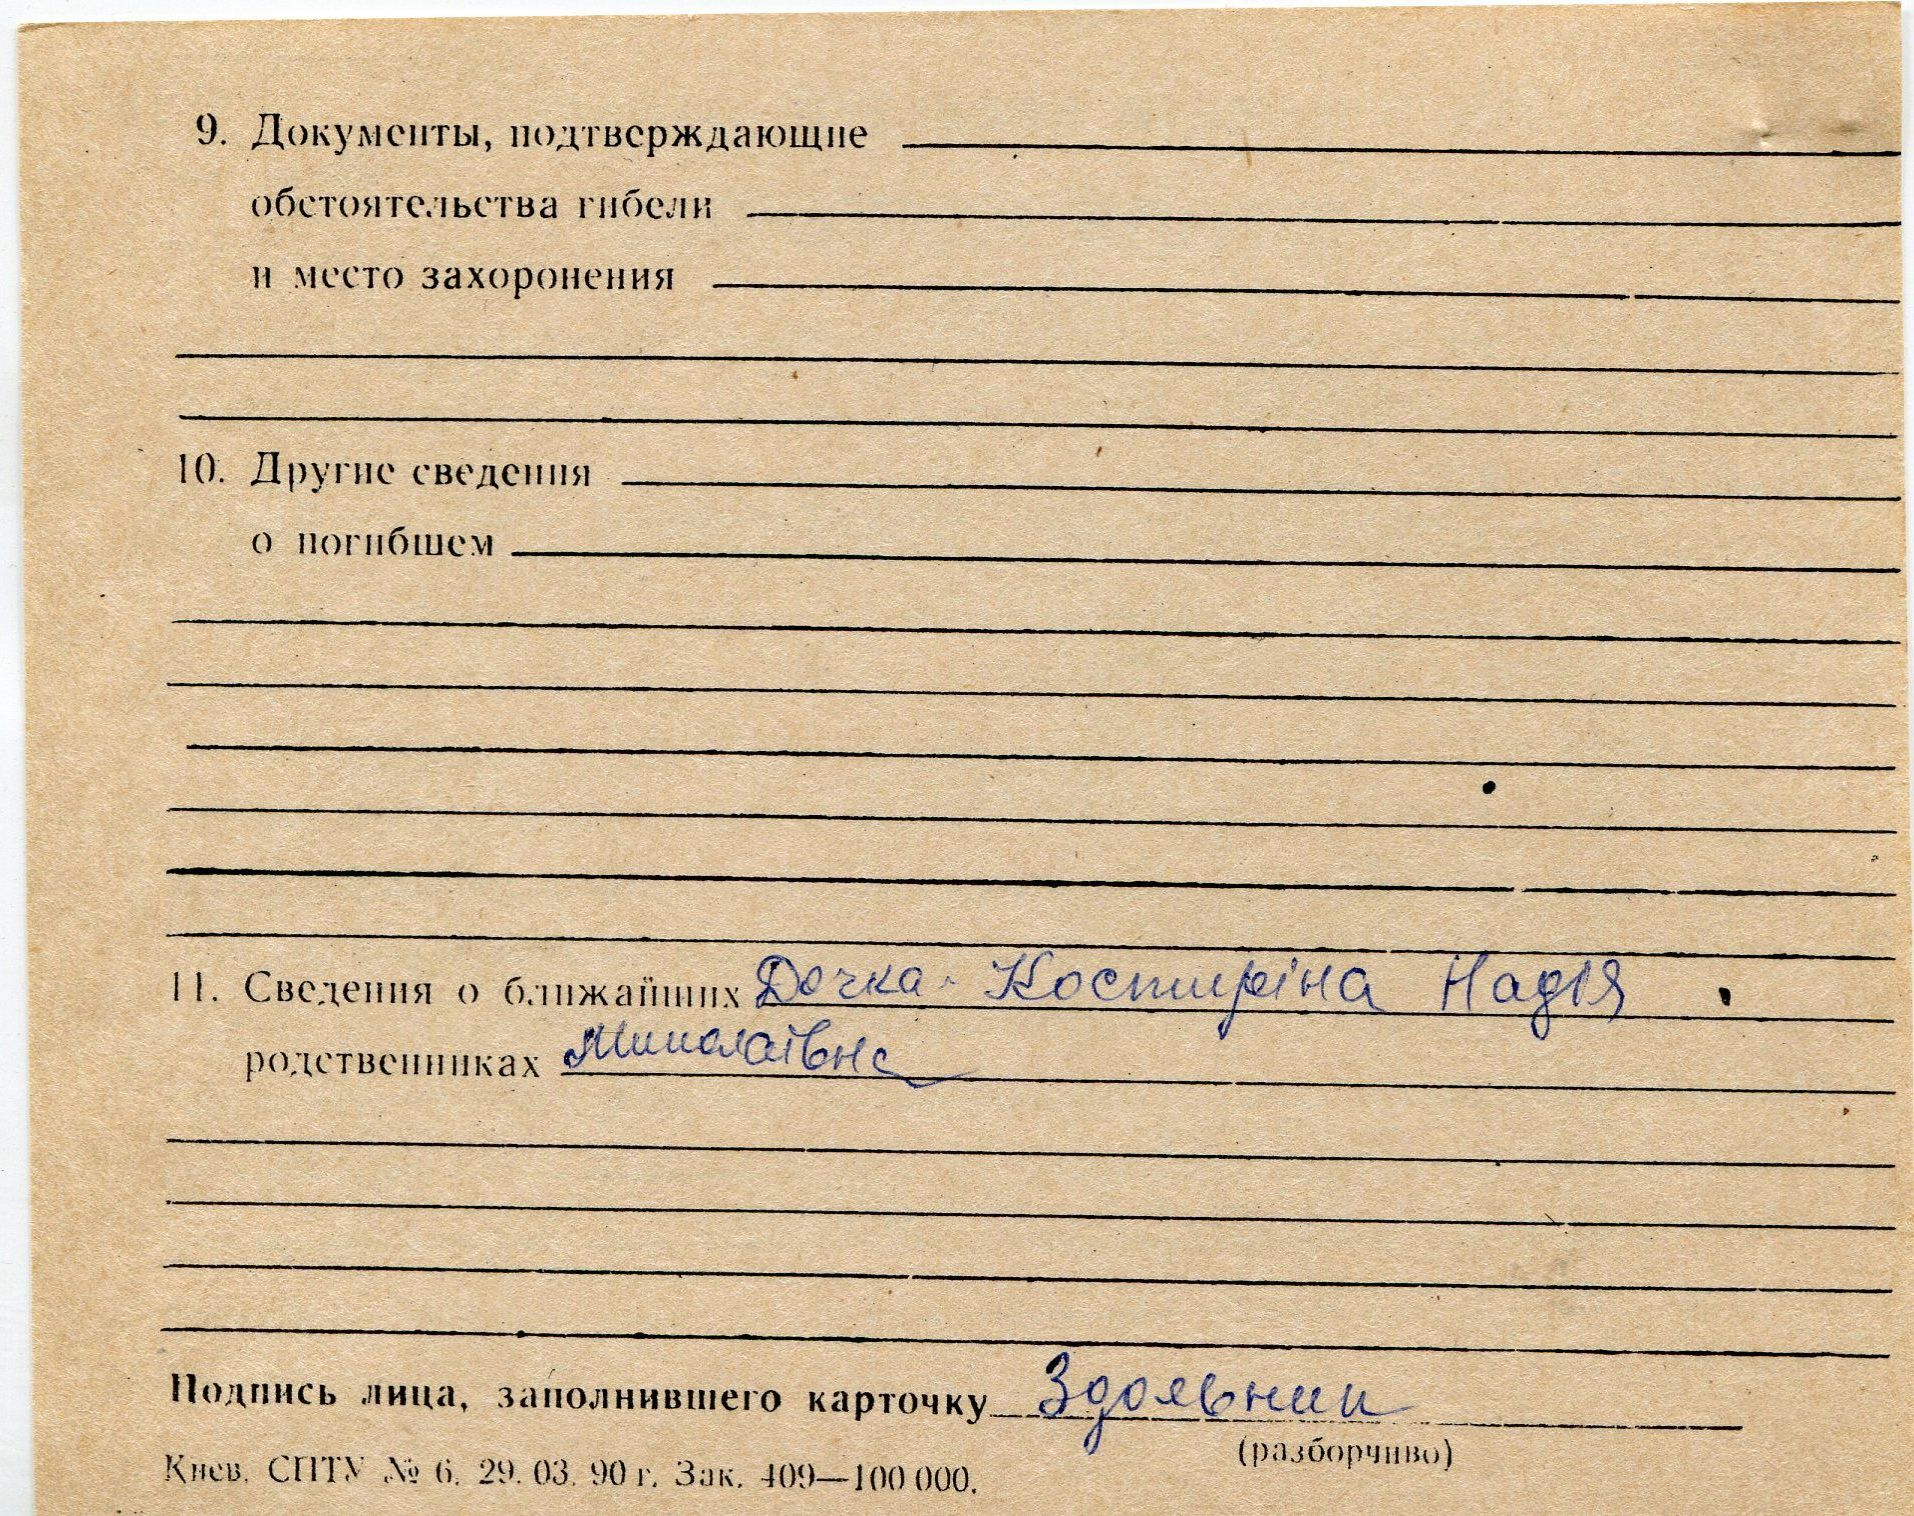 9. Документы, подтверждающие
обстоятельства гибели
и место захоронения
10. Другие сведения
о погибшем
11. Сведения о ближайших Дочка - Костиріна Надія
родственниках Миколаївна
Подпись лица, заполнившего карточку
(разборчиво)
Киев. СПТУ № 6. 29. 03. 90 г. Зак. 409—100 000.